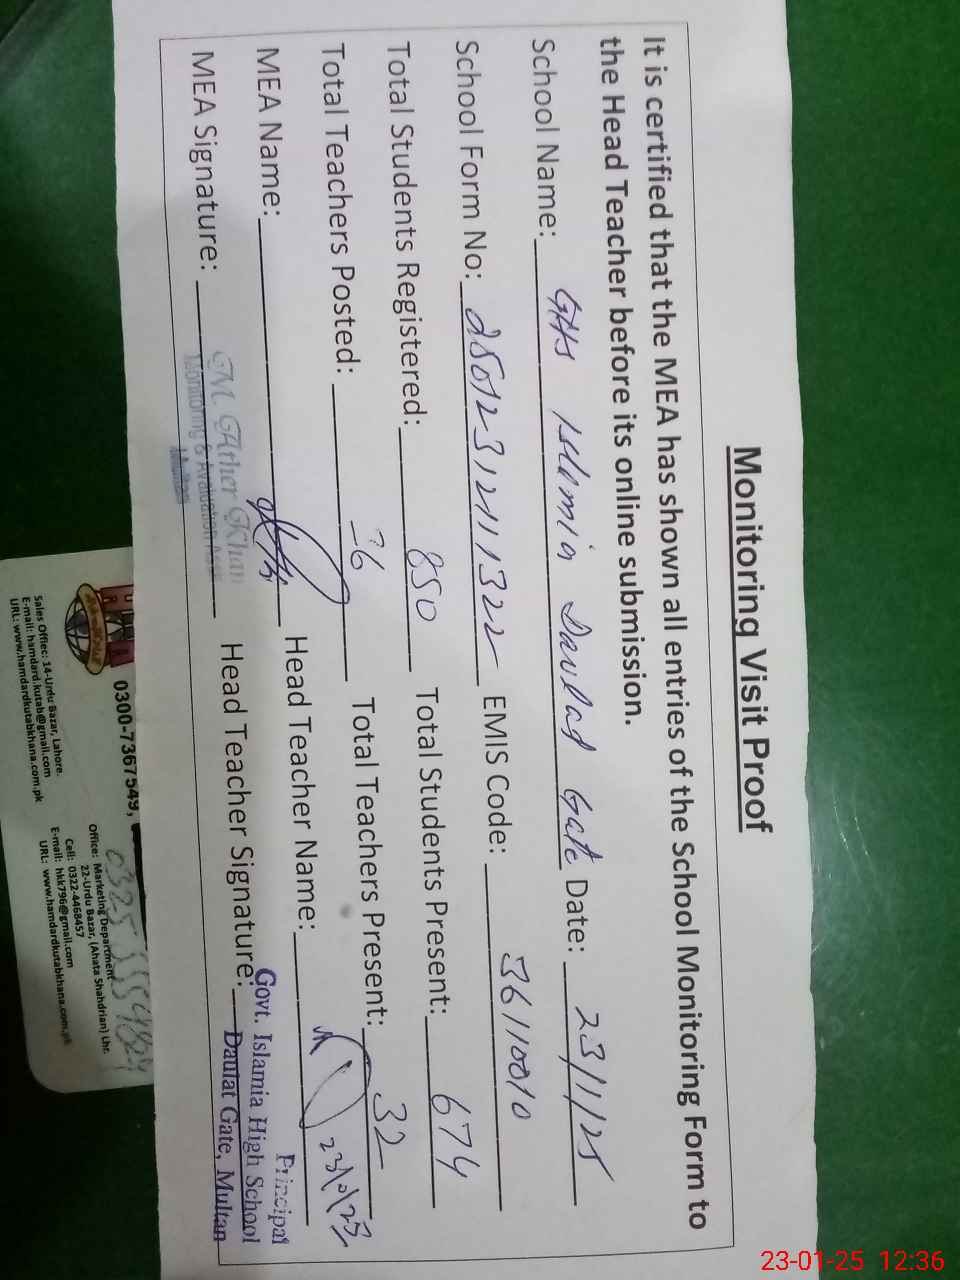 Monitoring Visit Proof
It is certified that the MEA has shown all entries of the School Monitoring Form to
the Head Teacher before its online submission.
School Name: GHS Islamia Daulat Gate Date: 23/1/25
School Form No: EMIS Code: 36110010
Total Students Registered: 850 Total Students Present: 674
Total Teachers Posted: 36 Total Teachers Present: 32
MEA Name: Head Teacher Name:
MEA Signature: Head Teacher Signature:
M. Ather Khan
Monitoring &
Multan
Principal
Govt. Islamia High School
Daulat Gate, Multan
0300-7367549,
Sales Offiec: 14-Urdu Bazar, Lahore.
E-mail: hamdard.kutab@gmail.com
URL: www.hamdardkutabkhana.com.pk
Office: Marketing Department
22-Urdu Bazar, (Ahata Shahdrian) Lhr.
Cell: 0322-4468457
E-mail: hkk796@gmail.com
URL: www.hamdardkutabkhana.com.pk
23-01-25 12:36